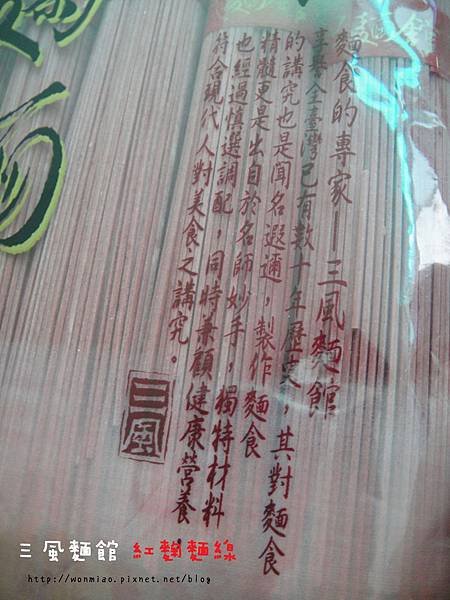 麵食的專家—三風麵館
享譽全臺灣已有數十年歷史，其對麵食
的講究也是聞名遐邇，製作麵食
精髓更是出自於名師妙手，獨特材料
也經過慎選調配，同時兼顧健康營養，
符合現代人對美食之講究。
三風
三風麵館 紅麴麵線
http://wonmiao.pixnet.net/blog